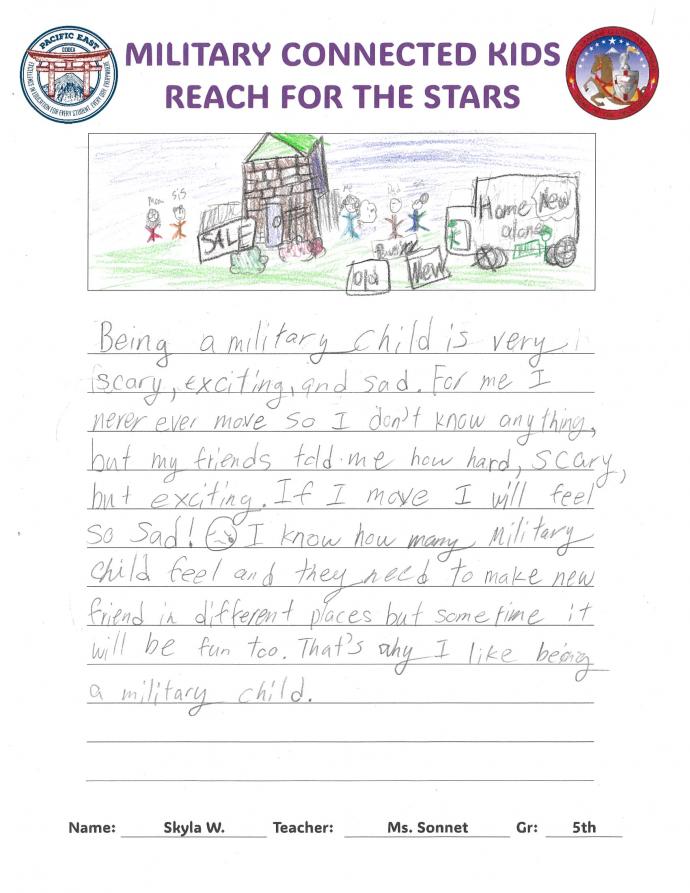 PACIFIC EAST
DODEA
EXCELLENCE IN EDUCATION FOR EVERY STUDENT, EVERY DAY, EVERYWHERE
MILITARY CONNECTED KIDS
REACH FOR THE STARS
Mom SIS
me Dad
SALE
Home New
alone
old New
Being a military child is very
scary, exciting, and sad. For me I
never ever move so I don't know anything,
but my friends told me how hard, scary,
but exciting. If I move I will feel
so sad! I know how many military
child feel and they need to make new
friend in different places but sometime it
will be fun too. That's why I like being
a military child.
Name: Skyla W. Teacher: Ms. Sonnet Gr: 5th